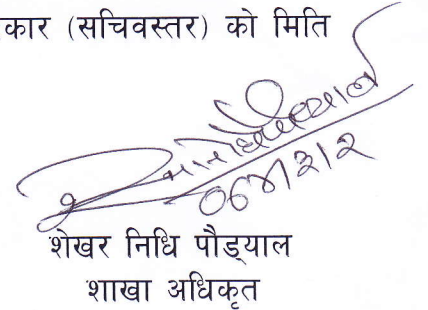 कार (सचिवस्तर) को मिति
शेखर निधि पौड्याल
शाखा अधिकृत